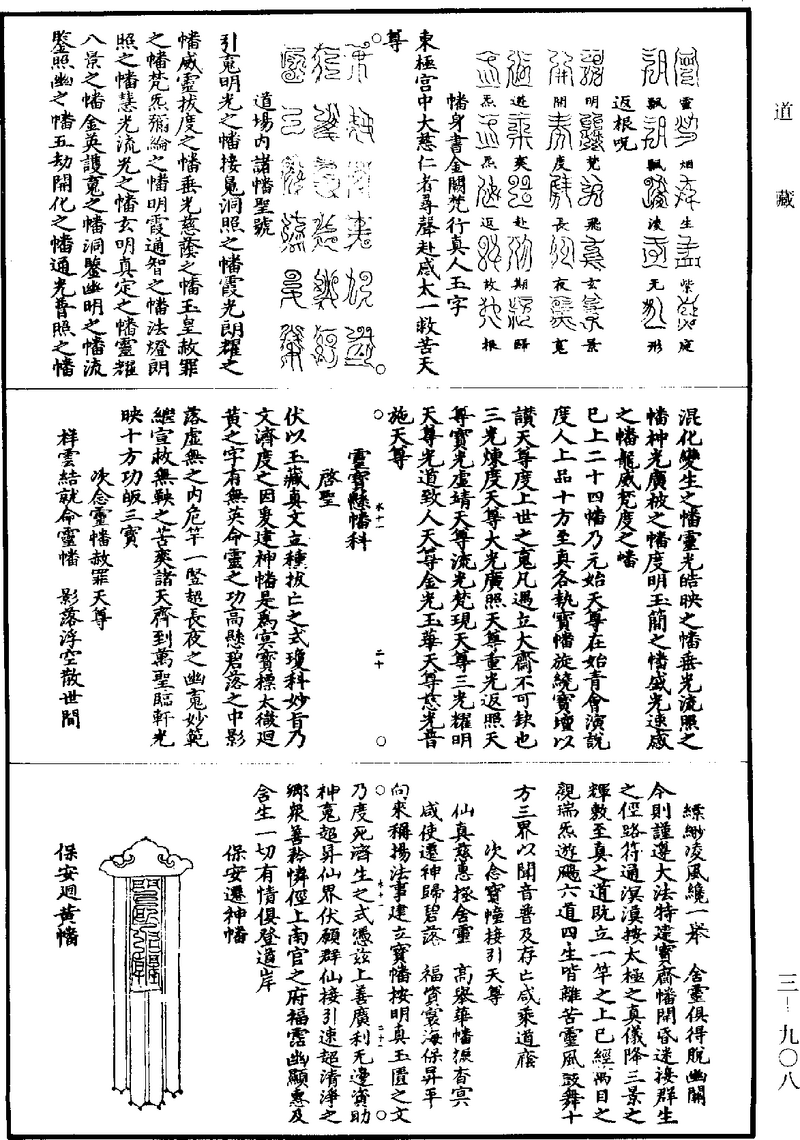 道藏
靈 烟 生 紫 庭
飄 飄 淩 无 形
返根呪
明 梵 飛 玄 景
開 度 長 夜 䰟
遊 爽 赴 期 歸
炁 炁 返 故 根
幡身書金闕梵行真人玉字
東極宫中大慈仁者尋聲赴感太一救苦天
尊
道塲内諸幡聖號
引䰟明光之幡接䰟洞照之幡霞光朗耀之
幡威靈拔度之幡垂光慈蔭之幡玉皇赦罪
之幡梵炁彌綸之幡明霞通智之幡法燈朗
照之幡慧光流光之幡玄明真定之幡靈耀
八景之幡金英護䰟之幡洞鑒幽明之幡流
鑒照幽之幡五劫開化之幡通光普照之幡
混化變生之幡靈光皓映之幡垂光流照之
幡神光廣被之幡度明玉簡之幡盛光速感
之幡龍威梵度之幡
已上二十四幡乃元始天尊在始青會演說
度人上品十方至真各執寶幡旋繞寶壇以
讃天尊度上世之䰟凡遇立大齋不可缺也
三光煉度天尊大光廣照天尊重光返照天
尊寶光虚靖天尊流光梵現天尊三光耀明
天尊光道致人天尊金光玉華天尊慈光普
施天尊
靈寶懸幡科
啓聖
伏以玉藏真文立種拔亡之式瓊科妙旨乃
文濟度之因爰建神幡是爲冥寶標太微迴
黄之字有無英命靈之功高懸碧落之中影
落虚無之内危竿一竪超長夜之幽䰟妙範
繼宣赦無鞅之苦爽諸天齊到萬聖臨軒光
映十方功皈三寶
次念靈幡赦罪天尊
祥雲結就命靈幡　影落浮空散世間
縹緲淩風纔一舉　含靈俱得脫幽關
今則謹遵大法特建寶齋幡開昏迷接群生
之徑路符通溟漠按太極之真儀降三景之
輝敷至真之道旣立一竿之上已經萬目之
觀瑞炁遊颺六道四生皆離苦靈風鼓舞十
方三界以聞音普及存亡咸乘道蔭
次念寶幢接引天尊
仙真慈惠拯含靈　高舉華幡誤杳冥
咸使遷神歸碧落　福資寰海保昇平
向來稱揚法事建立寶幡按明真玉匱之文
乃度死濟生之式憑兹上善廣利无邊資助
神䰟超昇仙界伏願群仙接引速超清淨之
鄉衆善矜憐徑上南宫之府福霑幽顯惠及
含生一切有情俱登道岸
保安遷神幡
保安迴黄幡
三–九〇八